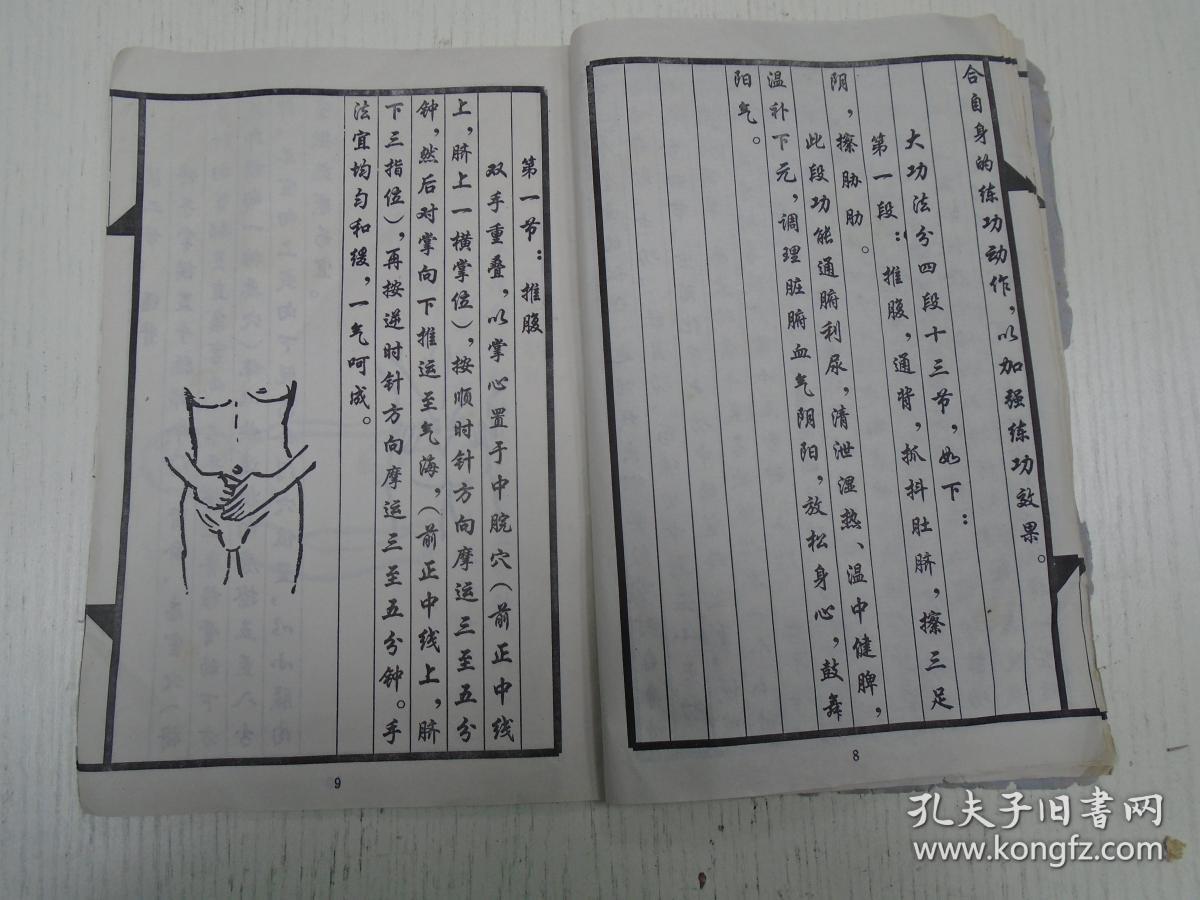 合自身的练功动作，以加强练功效果。
大功法分四段十三节，如下：
第一段：推腹，通背，抓抖肚脐，擦三足
阴，擦胁肋。
此段功能通腑利尿，清泄湿热、温中健脾，
温补下元，调理脏腑血气阴阳，放松身心，鼓舞
阳气。
8
第一节：推腹
双手重叠，以掌心置于中脘穴（前正中线
上，脐上一横掌位），按顺时针方向摩运三至五分
钟，然后对掌向下推运至气海，（前正中线上，脐
下三指位），再按逆时针方向摩运三至五分钟。手
法宜均匀和缓，一气呵成。
9
孔夫子旧书网
www.kongfz.com